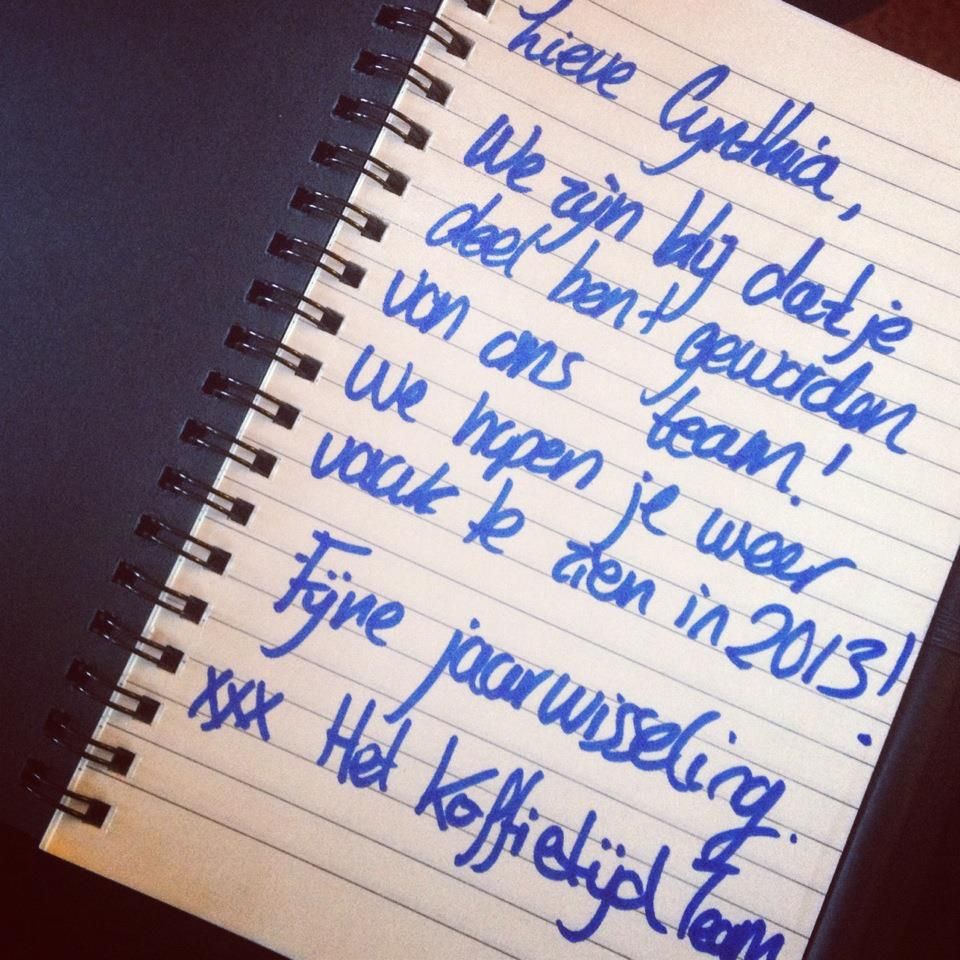 Lieve Cynthia,
We zijn blij dat je
deel bent geworden
van ons team!
We hopen je weer
vaak te zien in 2013!
Fijne jaarwisseling.
xxx Het Koffietijd Team